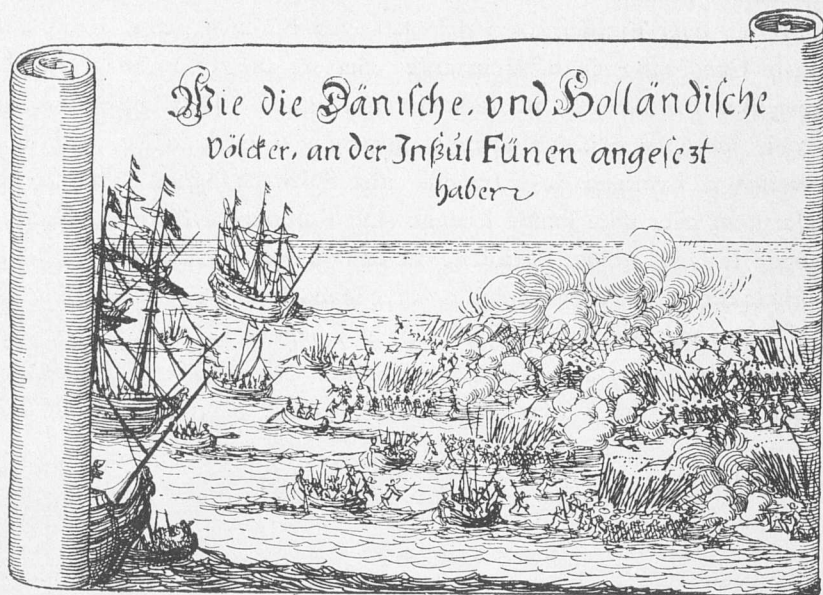 Wie die Dänische. vnd Holländische
Völcker. an der Inßul Fünen angesezt
haben